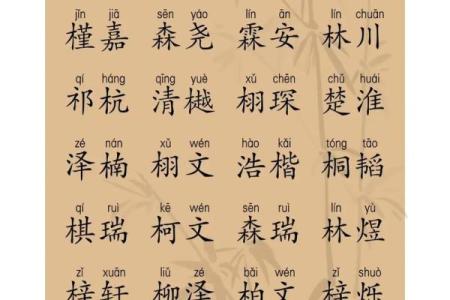 jǐn jiā sēn yáo lín ān lín chuān
槿嘉 森尧 霖安 林川
qí háng qīng yuè xǔ chēn chǔ huái
祁杭 清樾 栩琛 楚淮
zé nán xǔ wén hào kǎi tóng tāo
泽楠 栩文 浩楷 桐韬
qí ruì kē wén sēn ruì lín yù
棋瑞 柯文 森瑞 林煜
zǐ xuān liǔ zé bǎi wén zǐ shuò
梓轩 柳泽 柏文 梓烁